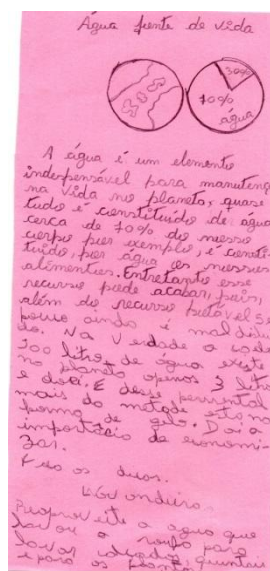 Água fonte de vida
30%
70%
água
A água é um elemento
indespensável para manutenç
na vida no planeta, quase
tudo é constituído de água
cerca de 70% do nosso
corpo por exemplo, é consti-
tuido, por água os nossos
alimentos. Entretanto esse
recurso pode acabar, pois,
além do recurso potável se
pouco ainda é mal distu
do. Na Verdade a cada
100 litro de água existe
no planeta apenas 3 litr
e doce. E desse
mais do metade esta na
forma de gelo. Daí a
importãcia de economi-
zar.
os dicas.
Lavanderia
Reaproveite a agua que
lavou a roupa para
lavar calçadas, quintais
e para as plantas